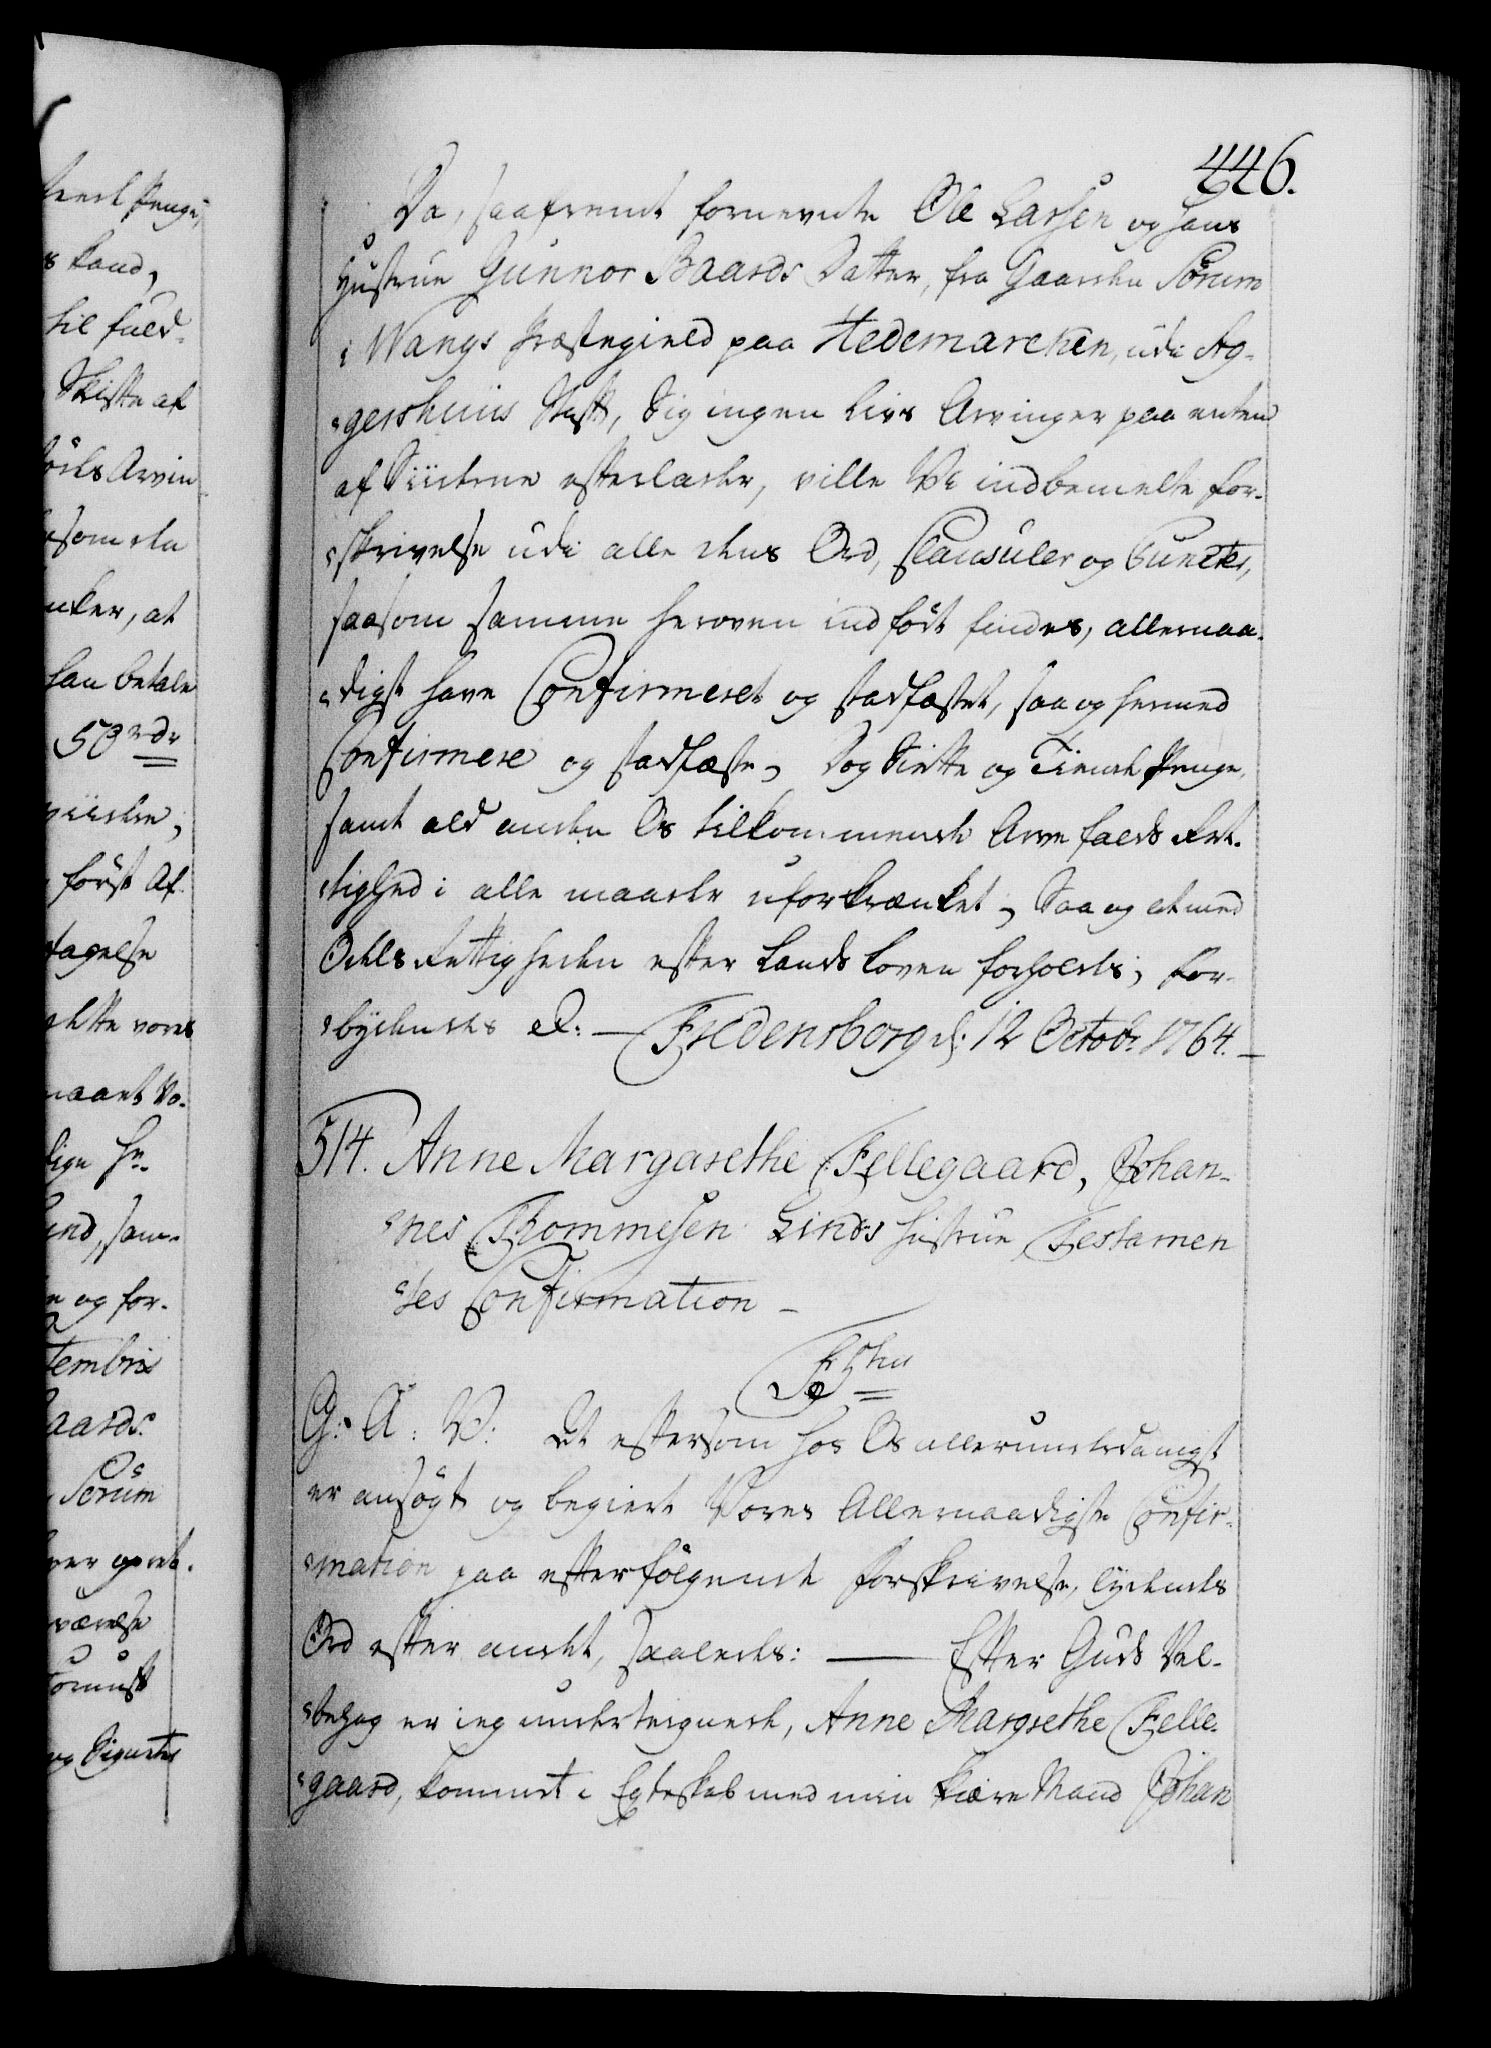 446.
Da, saafremt fornevnte Ole Larsen og hans
Hustrue Gunnor Baards Datter, fra Gaarden Sörum
i Wangs Præstegield paa Hedemarcken, udi Ag-
gershuus Stift, Sig ingen Livs Arvinger paa enten
af Siiderne efterlader, ville Vi indbemelte for-
skrivelse udi alle dens Ord, Clausuler og Puncter,
saasom samme heroven indfört findes, allernaa-
digst have Confirmeret og stadfæstet, saa og hermed
Confirmere og stadfæste, Dog Siette og Tiende Penge,
samt ald anden Os tilkommende Arvefalds Ret-
tighed i alle maader uforkrænket, Saa og at med
Odels Rettigheden efter Lands Loven forholdes, For-
bydendes &: — Fredensborg d: 12 Octobr 1764. —
514. Anne Margarethe Fellegaard, Johan-
nes Thommesen Linds Hustrue, Testamen
tes Confirmation —
G: A: V: At eftersom hos Os allerunderdanigst
er ansögt og begiert Vores Allernaadigste Confir-
mation paa efterfölgende Forskrivelse, lydendes
Ord efter andet, saaledes: — Efter Guds Vel-
behag er ieg underteignede, Anne Margrethe Felle-
gaard, kommet i Egteskab med min kiære Mand Johan
til fuld-
Skifte af
som da
at
han betale
50 rdr
först Af
tagelse
dette vores
og for-
tembris
aards
Sörum